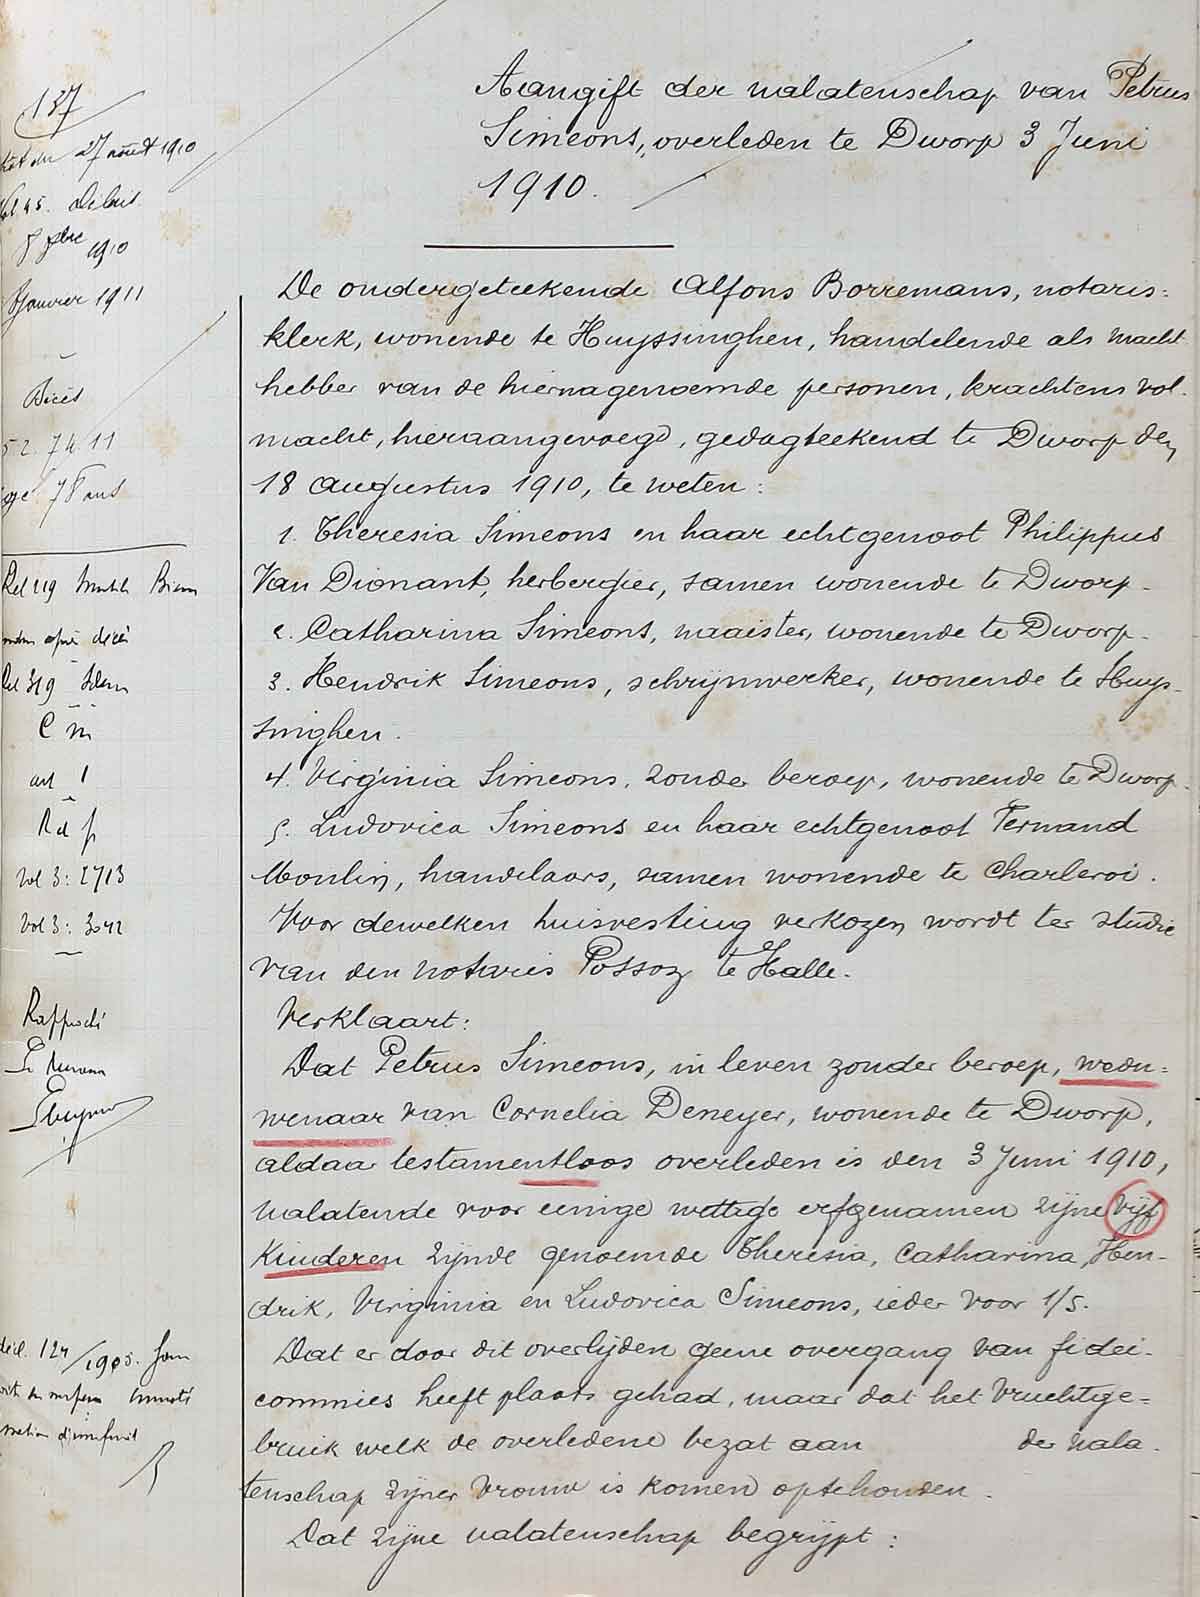 137
27 août 1910
8 9bre 1910
Janvier 1911
Décès
52.74.11
78 ans
après décès
Rel 319 Idem
C M
art 1
Vol 3: 2713
Vol 3: 3042
décl. 124/1905.
Aangift der nalatenschap van Petrus
Simeons, overleden te Dworp 3 Juni
1910.
De ondergeteekende Alfons Borremans, notaris=
klerk, wonende te Huyssinghen, handelende als macht
hebber van de hiernagenoemde personen, krachtens vol-
macht, hieraangevoegd, gedagteekend te Dworp den
18 Augustus 1910, te weten:
1. Theresia Simeons en haar echtgenoot Philippus
Van Dionant, herbergier, samen wonende te Dworp-
2. Catharina Simeons, naaister, wonende te Dworp-
3. Hendrik Simeons, schrijnwerker, wonende te Huys-
singhen.
4. Virginia Simeons, zonder beroep, wonende te Dworp-
5. Ludovica Simeons en haar echtgenoot Fernand
Moulin, handelaars, samen wonende te Charleroi.
Voor dewelken huisvesting verkozen wordt ter studie
van den notaris Possoz te Halle.
Verklaart:
Dat Petrus Simeons, in leven zonder beroep, wedu=
wenaar van Cornelia Deneyer, wonende te Dworp,
aldaar testamentloos overleden is den 3 Juni 1910,
nalatende voor eenige wettige erfgenamen zijne vijf
Kinderen zijnde genoemde Theresia, Catharina, Hen-
drik, Virginia en Ludovica Simeons, ieder voor 1/5.
Dat er door dit overlijden geene overgang van fidei-
commies heeft plaats gehad, maar dat het vruchtge=
bruik welk de overledene bezat aan der nala-
tenschap zijner vrouw is komen optehouden.
Dat zijne nalatenschap begrijpt: